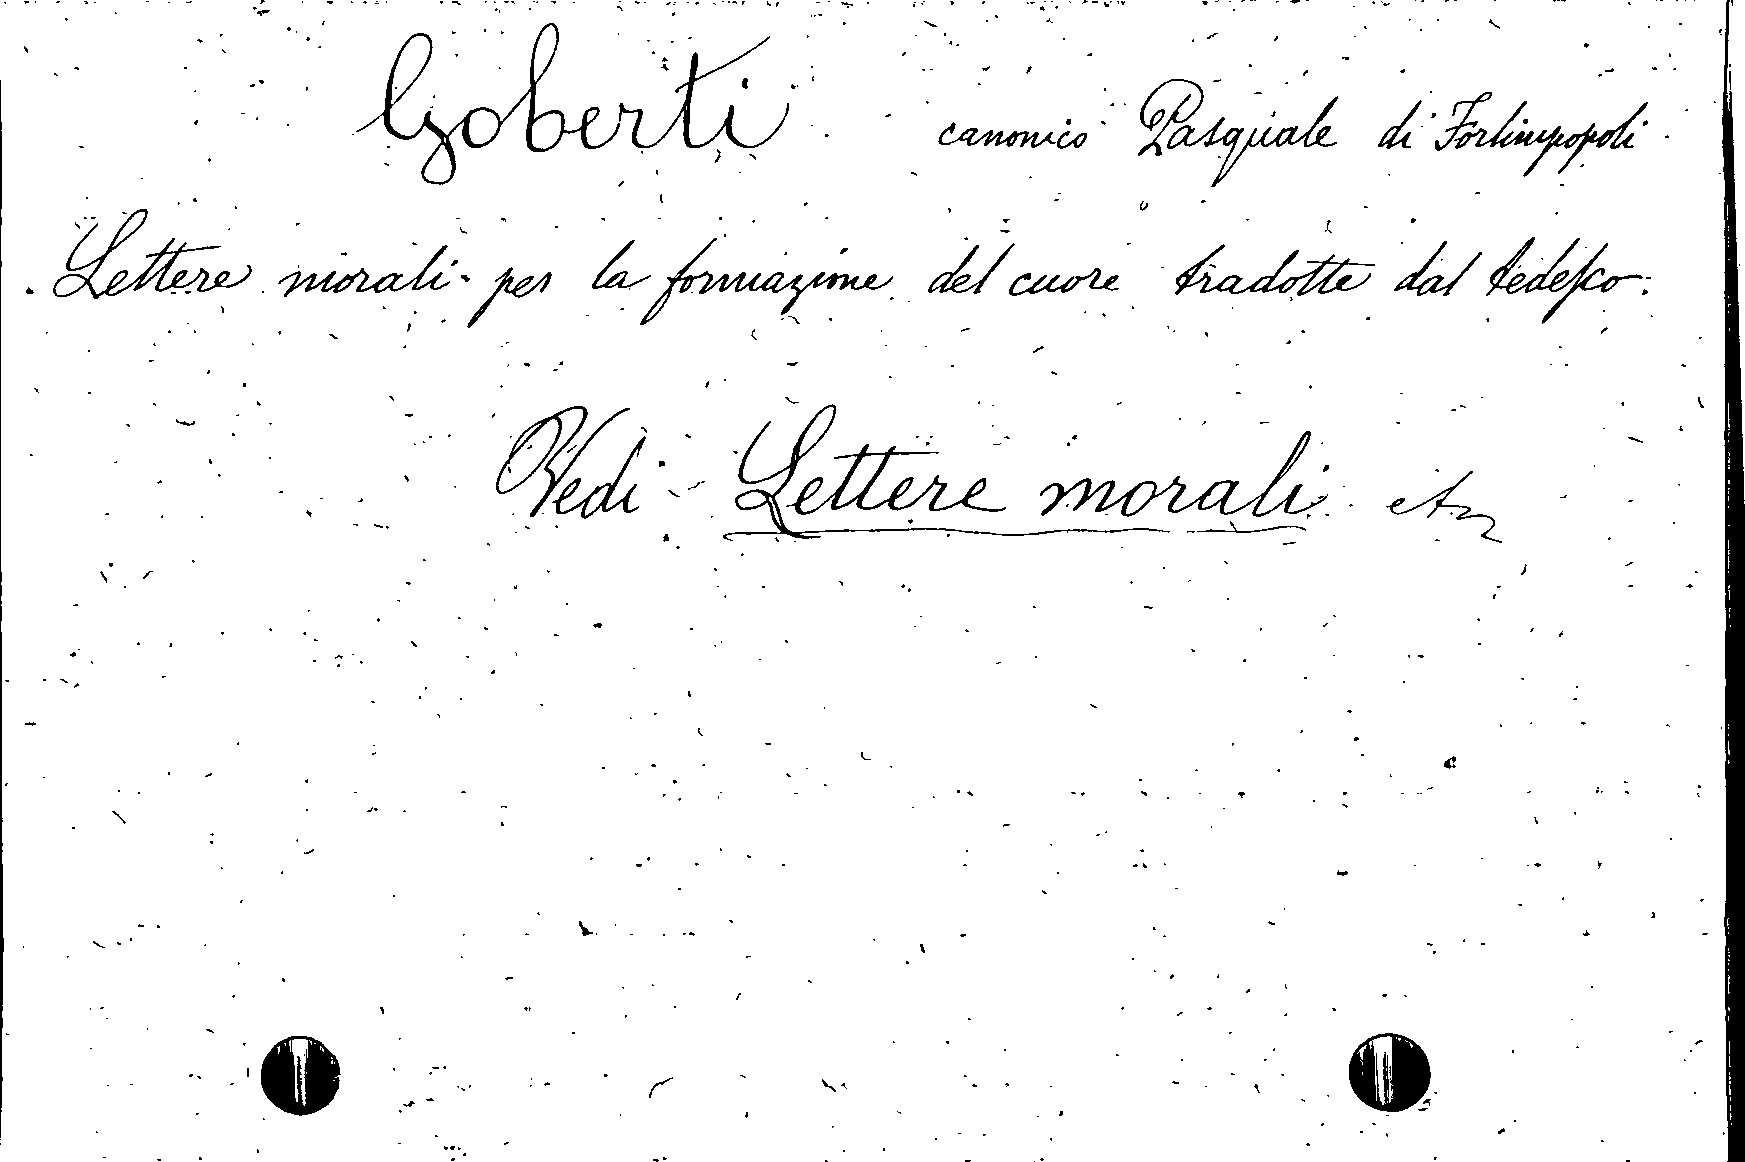 Goberti canonico Pasquale di Forlimpopoli
Lettere morali per la formazione del cuore tradotte dal tedesco.
Vedi Lettere morali